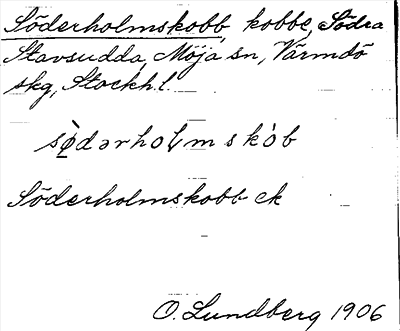 Söderholmskobb, kobbe, Södra
Stavsudda, Möja sn, Värmdö
skg, Stockh. l.
sö̀dərholmskòb
Söderholmskobb ek
O. Lundberg 1906